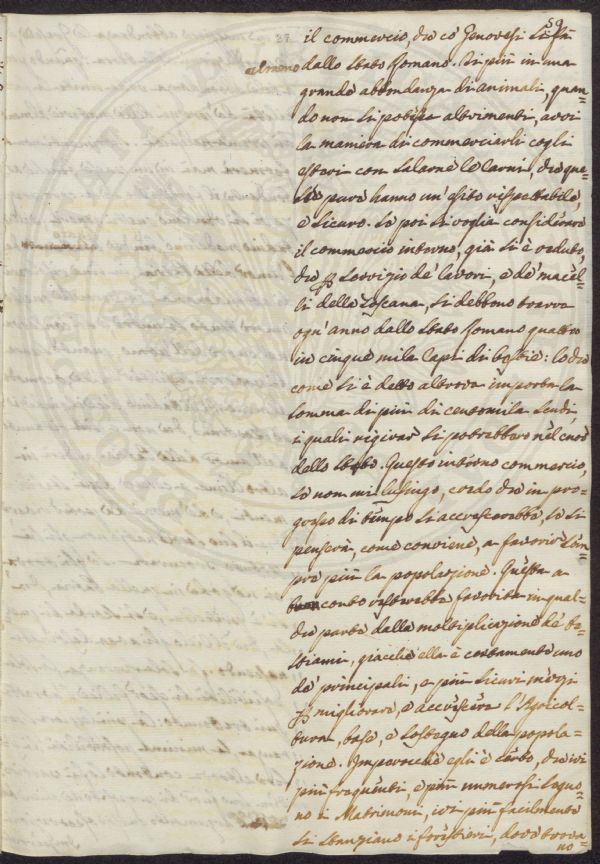 59
il commercio, che co' Genovesi si fà
dallo Stato Romano. Di più in una
almeno
grande abondanza di animali, quan=
do non si potesse altrimenti, avvi
la maniera di commerciarli cogli
esteri con salarne le carni, che que=
ste pure hanno un' esito rispettabile,
e sicuro. Se poi si voglia considerare
il commercio interno, già si è veduto,
che per servizio de' lavori, e de' macel=
li della Toscana, si debbono trarre
ogn' anno dallo Stato Romano quattro
in cinque mila Capi di bestie: lo che
come si è detto altrove importa la
somma di più di centomila scudi,
i quali girar si potrebbero nel cuor
dello Stato. Questo interno commercio,
se non mi lusingo, credo che in pro=
gresso di tempo si accrescerebbe, se si
penserà, come conviene, a favorir sem=
pre più la popolazione. Questa a
conto resterebbe favorita in qual=
che parte dalla moltiplicazione de' be=
stiami, giacchè ella è certamente uno
de' principali, e più sicuri mezzi
per migliorare, e accrescere l'Agricol=
tura, base, e sostegno della popola=
zione. Imperocchè egli è certo, che ivi
più frequenti, e più numerosi seguo=
no i Matrimonj, ivi più facilmente
si stanziano i forestieri, dove trova=
no